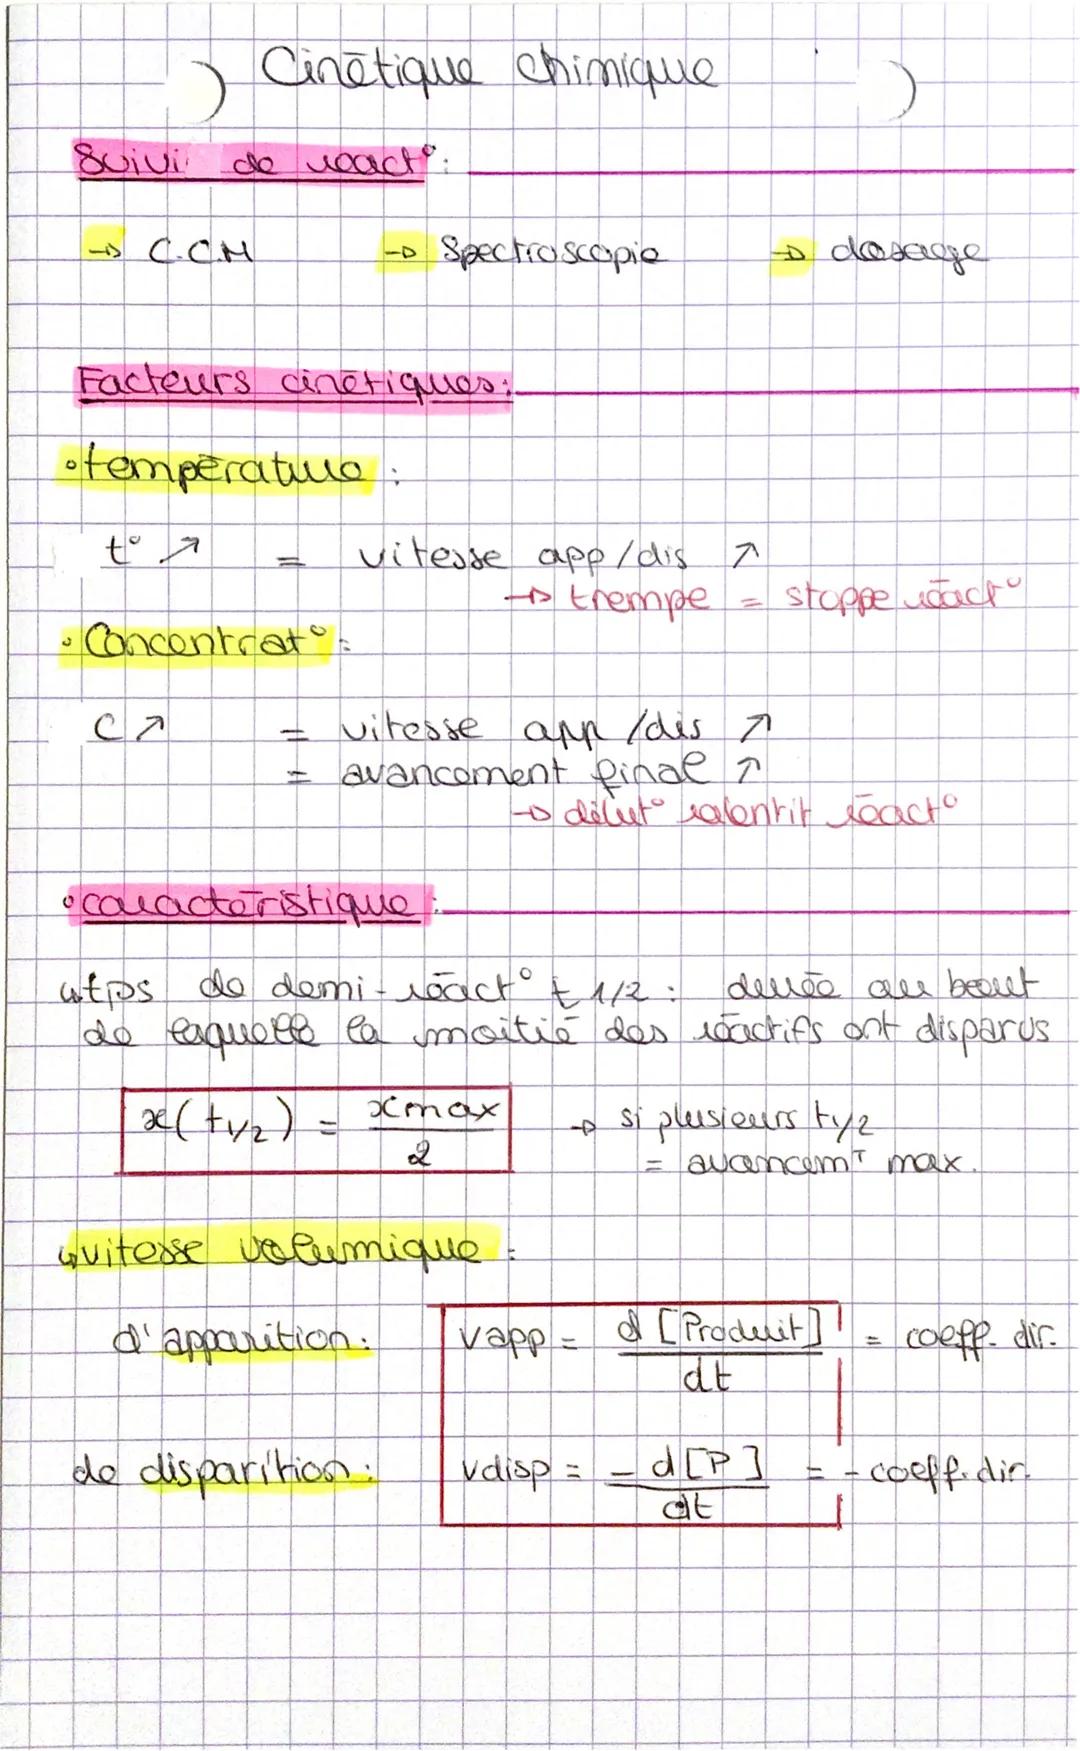 Cinétique chimique
Suivi de réact°:
→ C.C.M → Spectroscopie → dosage
Facteurs cinétiques:
• température :
t° ↗ = vitesse app/dis ↗
→ trempe = stoppe réact°
• Concentrat° :
C ↗ = vitesse app/dis ↗
= avancement final ↗
→ dilut° ralentit réact°
• caractéristique :
↳ tps de demi-réact° t 1/2 : durée au bout
de laquelle la moitié des réactifs ont disparus
x(t1/2) = xmax/2 → si plusieurs t1/2
= avancemT max.
↳ vitesse volumique :
d'apparition: Vapp = d[Produit]/dt = coeff. dir.
de disparition: Vdisp = -d[P]/dt = - coeff. dir.